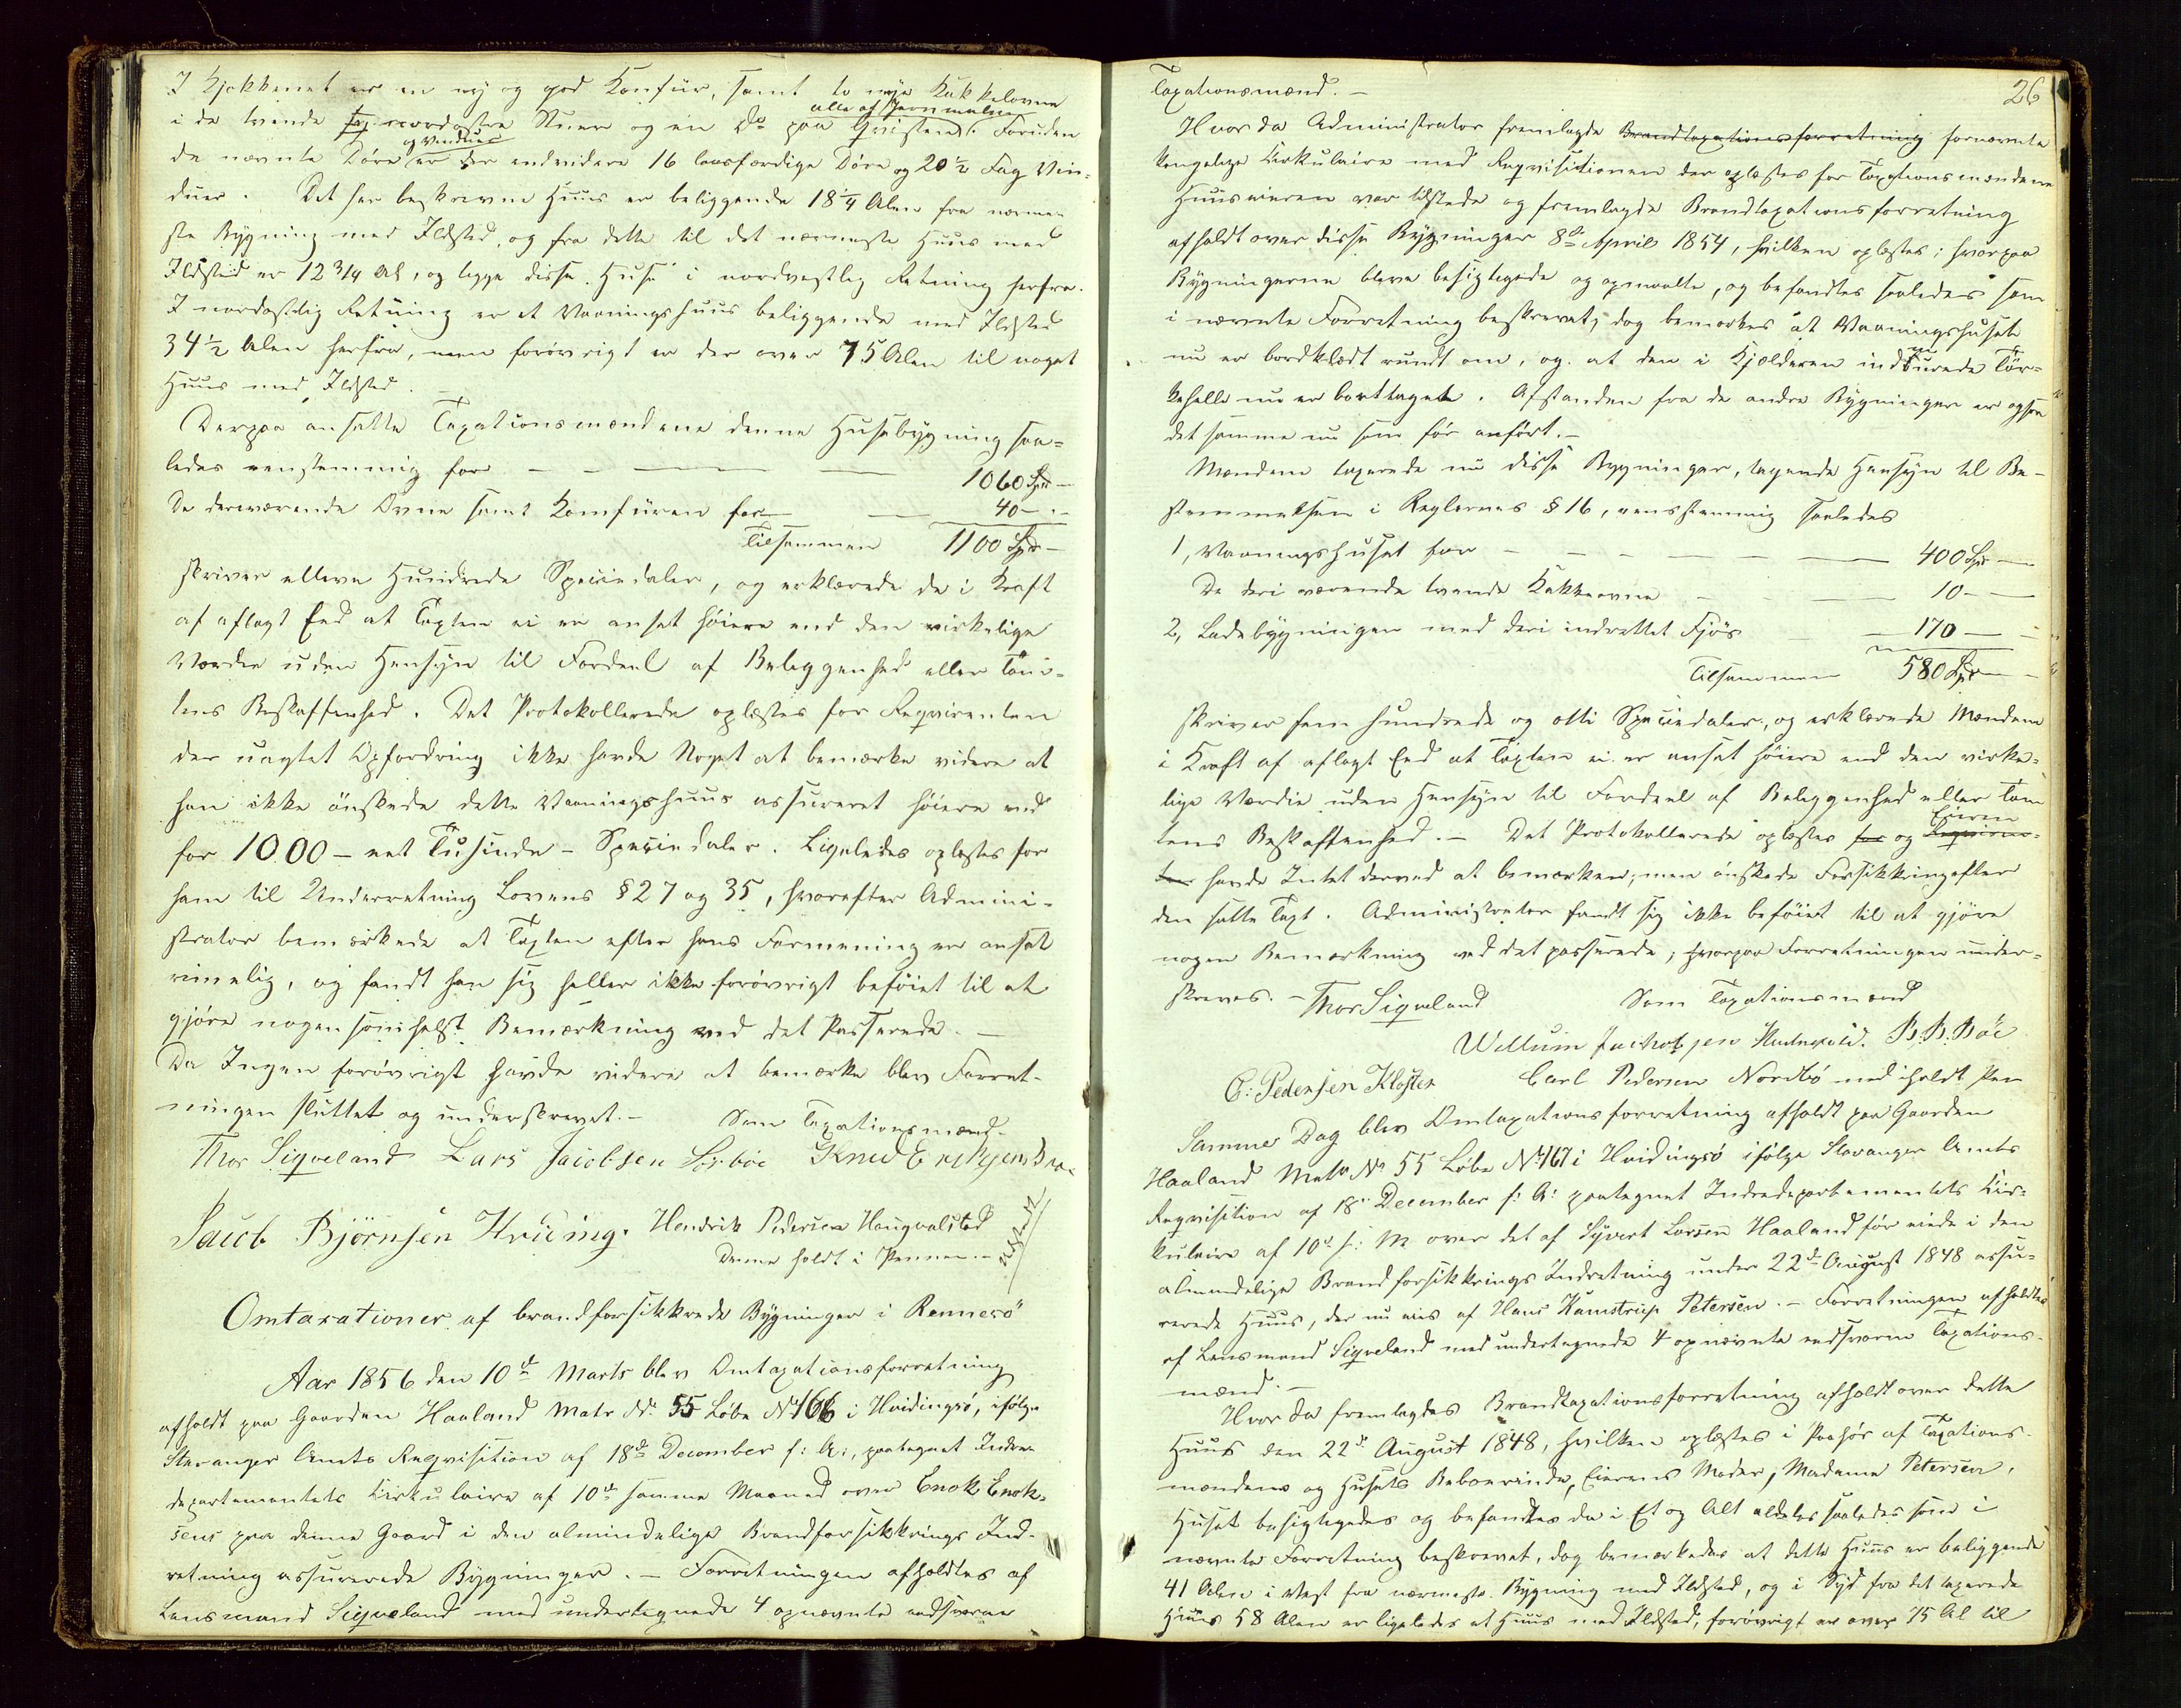 I Kjøkkenet er en ny og god Komfür, samt to nye Kakkelovne
i de tvende nordostre Stuer og en Do paa Qvisten. Foruden
alle af Jernmalm
og Vinduer
de nævnte Döre er der endvidere 16 laasfærdige Döre og 20 1/2 Fag Vin-
duer. Det her beskrevne Huus er beliggende 18 1/4 Alen fra nærme-
ste Bygning med Ildsted, og fra dette til det nærmeste Huus med
Ildsted er 12 3/4 Al, og ligge disse Huse i nordvestlig Retning herfra.
I nordostlig Retning er et Vaaningshuus beliggende med Ildsted
34 1/2 Alen herfra, men forövrigt er der over 75 Alen til noget
Huus med Ildsted.
Derpaa ansatte Taxationsmændene denne Husebygning saa-
ledes eenstemmig for — — — 1060 Spd —
De derværende Ovne samt Komfüren for — — 40 — -
Tilsammen 1100 Spd —
skriver elleve Hundrede Speciedaler, og erklærede de i Kraft
af aflagt Eed at Taxten ei er ansat höiere end den virkelige
Værdie uden Hensyn til Fordeel af Beliggenhed eller Tom-
tens Beskaffenhed. Det Protokollerede oplæstes for Reqvirenten
der uagtet Opfordring ikke havde Noget at bemærke videre at
han ikke önskede dette Vaaningshuus assureret höiere end
for 1000 — eet Tusinde — Speciedaler. Ligeledes oplæstes for
ham til Underretning Lovens § 27 og 35, hvorefter Admini-
strator bemærkede at Taxten efter hans Formening er ansat
rimelig, og fandt han sig heller ikke forövrigt beföiet til at
gjöre nogensomhelst Bemærkning ved det Passerede. —
Da Ingen forövrigt havde videre at bemærke blev Forret-
ningen sluttet og underskrevet. — Som Taxationsmænd.
Thor Siqveland Lars Jacobsen Sörböe
Jacob Björnsen Hvidning. Hendrik Pedersen Haugvalstad
Denne holdt i Pennen. —
Omtaxationer af brandforsikkrede Bygninger i Rennesö
Aar 1856 den 10de Marts blev Omtaxationsforretning
afholdt paa Gaarden Haaland Matr No. 55 Löbe No 166 i Hvidingsö, ifölge
Stavanger Amts Reqvisition af 18de December f: A:, paategnet Indre-
departementets Cirkulaire af 10de samme Maaned over Enok Enok-
sens paa denne Gaard i den almindelige Brandforsikkrings Ind-
retning assurerede Bygninger. — Forretningen afholdtes af
Lensmand Siqveland med undertegnede 4 opnævnte eedsvorne
26
Taxationsmænd. —
Hvor da Administrator fremlagde Brandtaxationsforretning fornævnte
kongelige Cirkulaire med Reqvisitionen der oplæstes for Taxationsmændene
Huuseieren var tilstede og fremlagde Brandtaxationsforretning
afholdt over disse Bygninger 8de April 1854, hvilken oplæstes; hvorpaa
Bygningerne bleve besigtigede og opmaalte, og befandtes saaledes som
i nævnte Forretning beskrevet; dog bemærkes at Vaaningshuset
nu er bordklædt rundt om, og at den i Kjælderen indmurede Tör-
kehelle nu er borttaget. Afstanden fra de andre Bygninger er ogsaa
det samme nu som för anfört. —
Mændene taxerede nu disse Bygninger, tagende Hensyn til Be-
stemmelsen i Reglernes § 16, eenstemmig saaledes
1, Vaaningshuset for — — — 400 Spd —
De deri værende tvende Kakkelovne — — 10 — —
2, Ladebygningen med deri indrettet Fjös — 170 — —
Tilsammen 580 Spd —
skriver fem hundrede og otti Speciedaler, og erklærede Mændene
i Kraft af aflagt Eed at Taxten ei er ansat höiere end den virke-
lige Værdie uden Hensyn til Fordeel af Beliggenhed eller Tom
tens Beskaffenhed. — Det Protokollerede oplæstes for og Reqviren-
Eieren
ten havde Intet derved at bemærke, men önskede Forsikkring efter
den satte Taxt. Administrator fandt sig ikke beföiet til at gjöre
nogen Bemærkning ved det passerede, hvorpaa Forretningen under-
skreves. — Thor Siqveland Som Taxationsmænd
Willum Jachobsen B. B. Böe
C: Pedersen Kloster Carl Pedersen Nordbö med iholdt Pen
Samme Dag blev Omtaxationsforretning afholdt paa Gaarden
Haaland Matr No 55 Löbe No 167 i Hvidingsö ifölge Stavanger Amts
Reqvisition af 18de December f: A: paategnet Indredepartementets Cir-
kulaire af 10de s: M over det af Sÿvert Larsen Haaland för eiede i den
almindelige Brandforsikkrings Indretning under 22de August 1848 assu-
rerede Huus, der nu eies af Hans Kamstrup Petersen. — Forretningen afholdtes
af Lensmand Siqveland med undertegnede 4 opnævnte eedsvorne Taxations-
mænd. —
Hvor da fremlagdes Brandtaxationsforretning afholdt over dette
Huus den 22de August 1848, hvilken oplæstes i Paahör af Taxations-
mændene og Husets Beboerinde, Eierens Moder, Madame Petersen.
Huset besigtigedes og befandtes da i Et og Alt aldeles saaledes som i
nævnte Forretning beskrevet, dog bemærkedes at dette Huus er beliggende
41 Alen i Vest fra nærmeste Bygning med Ildsted, og i Syd fra det taxerede
Huus 58 Alen er ligeledes et Huus med Ildsted, forövrigt er over 75 Al til